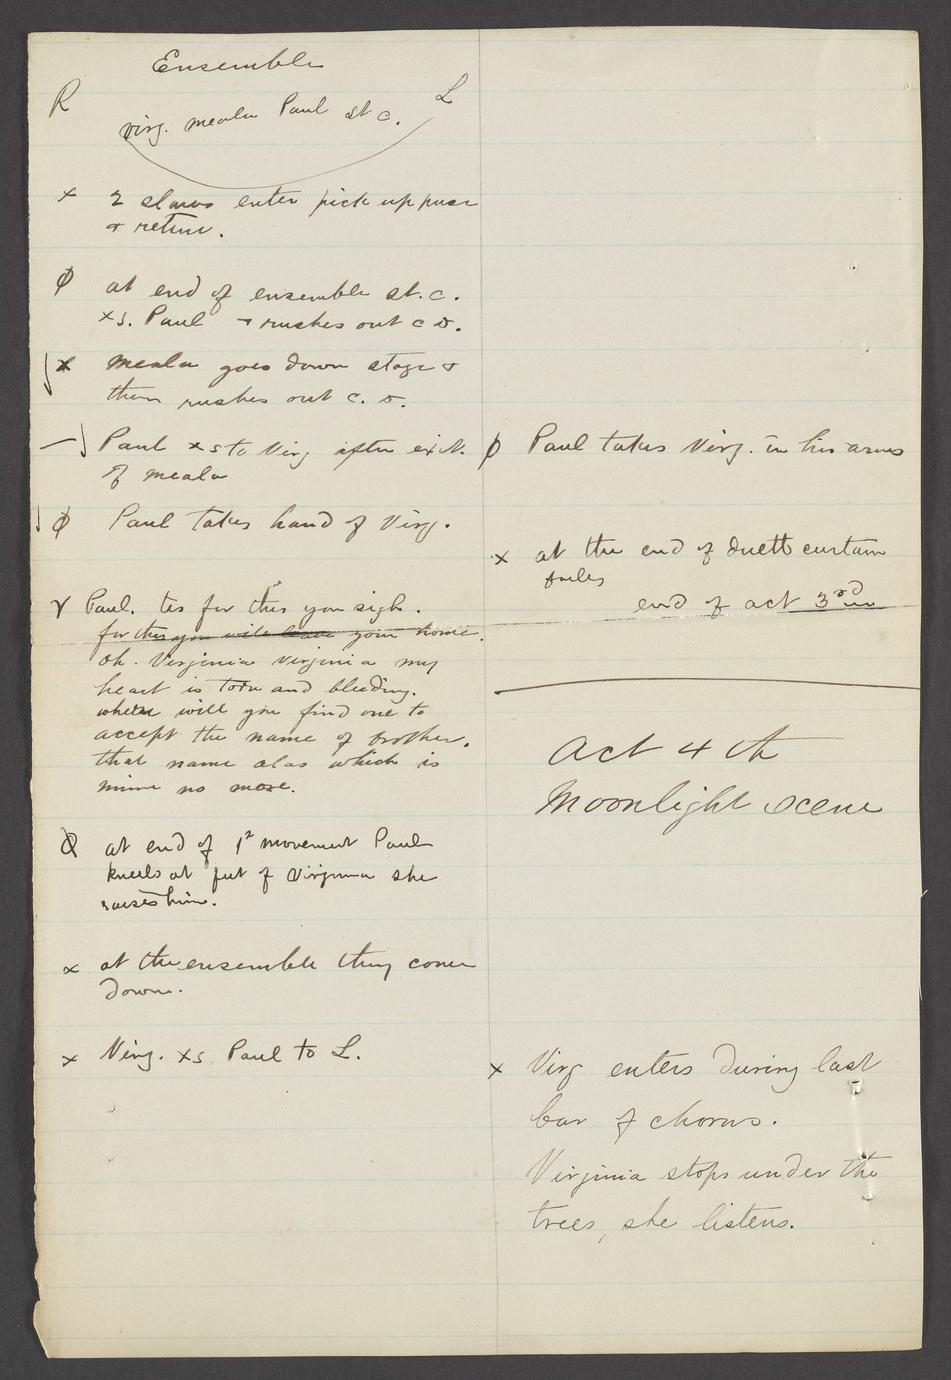 Ensemble
R L
Virg. meala Paul st c.
x 2 slaves enter pick up purse
& return.
φ at end of ensemble st. c.
xs. Paul & rushes out c D.
x meala goes down stage &
then rushes out c. D.
Paul xs to Virg after exit.
of meala
φ Paul takes hand of Virg.
Paul. tis for this you sigh.
for this you will leave your home.
oh. Virginia virginia my
heart is torn and bleeding.
where will you find one to
accept the name of brother.
that name alas which is
mine no more.
φ at end of 1st movement Paul
kneels at feet of Virginia she
raises him.
x at the ensemble they come
down.
x Virg. xs Paul to L.
φ Paul takes Virg. in his arms
x at the end of duett curtain
falls
end of act 3rd
Act 4 th
Moonlight scene
x Virg enters during last
bar of chorus.
Virginia stops under the
trees, she listens.